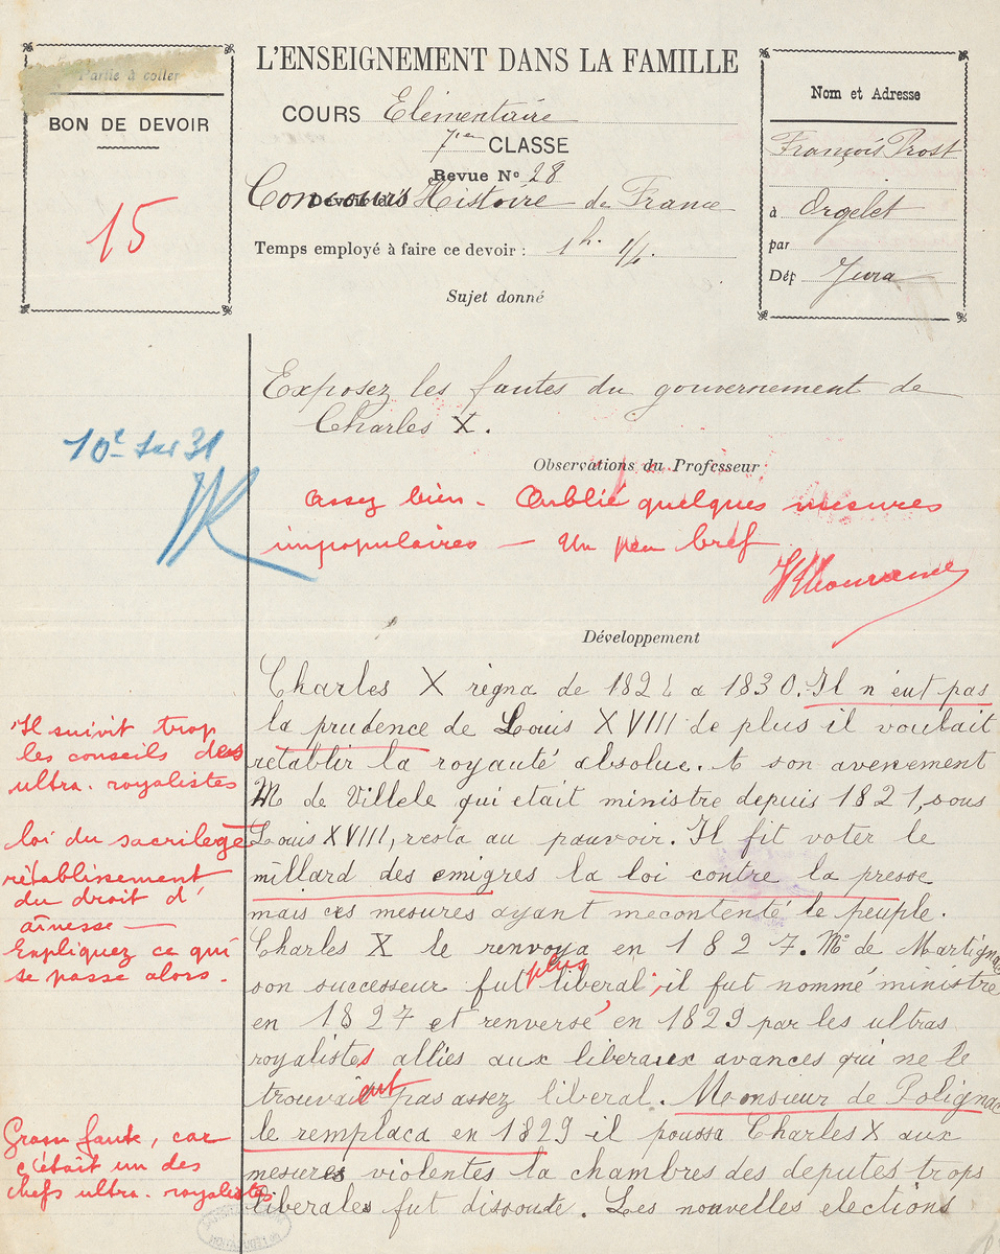 Partie à coller
BON DE DEVOIR
15
L'ENSEIGNEMENT DANS LA FAMILLE
COURS Elémentaire
7me CLASSE
Revue No 28
Concours Histoire de France
Temps employé à faire ce devoir : 1 h. 1/4.
Nom et Adresse
François Prost
à Orgelet
par
Dép Jura
Sujet donné
Exposez les fautes du gouvernement de
Charles X.
10e sur 31
Observations du Professeur
assez bien - Oublié quelques mesures
impopulaires — Un peu bref
Développement
Charles X régna de 1824 a 1830. Il n'eut pas
la prudence de Louis XVIII de plus il voulait
rétablir la royauté absolue. A son avenement
M de Villele qui etait ministre depuis 1821, sous
Louis XVIII, resta au pouvoir. Il fit voter le
millard des emigres la loi contre la presse
mais ces mesures ayant mecontenté le peuple.
Charles X le renvoya en 1827. Mr de Martignac
son successeur fut plus liberal ; il fut nommé ministre
en 1827 et renversé, en 1829 par les ultras
royalistes allies aux liberaux avances qui ne le
trouvaient pas assez liberal. Monsieur de Polignac
le remplaca en 1829 il poussa Charles X aux
mesures violentes la chambres des deputés trops
liberales fut dissoude. Les nouvelles elections
Il suivit trop
les conseils des
ultra. royalistes
loi du sacrilège
rétablissement
du droit d'
aînesse —
Expliquez ce qui
se passe alors.
Grosse faute, car
c'était un des
chefs ultra. royalistes